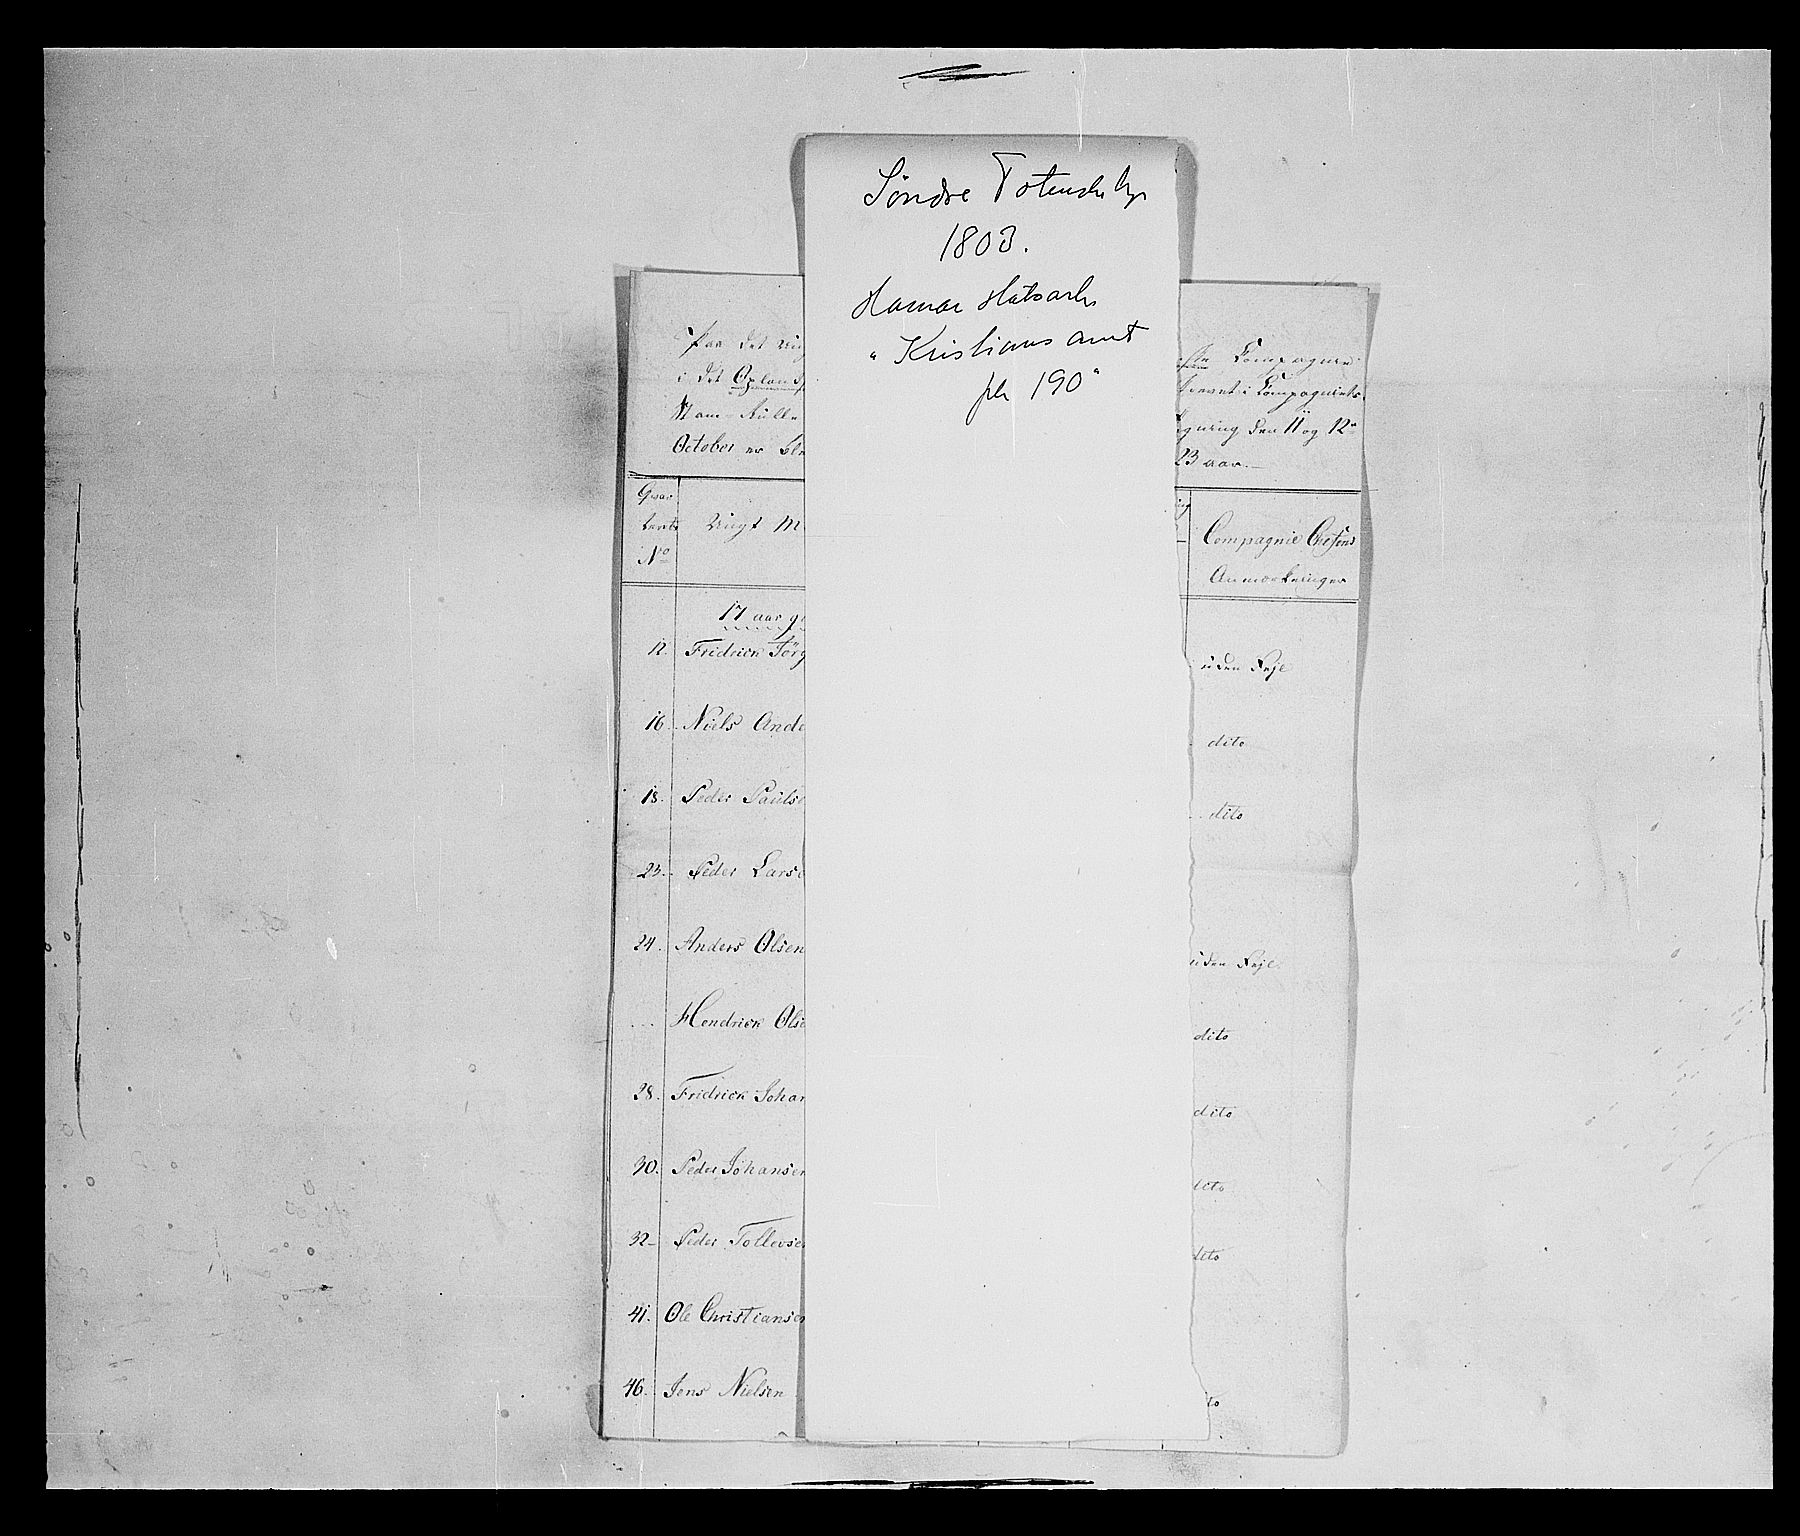 Søndre Totenske
1803.
Hamar Statsark
" Kristians amt
pk 190"
Paa det
i det Oplandsk
Stam-Rulle
October er ble
Compagnie
i Compagniets
den 11 og 12te
23 aar.
Qvar
teers
No
Ungt M
Compagnie Chefens
Anmærkninger
17 aar g
12. Fridrich Jörg
uden Feje
16. Niels Ande
dito
18. Peder Paulse
dito
23. Peder Larse
24. Anders Olsen
uden Feje
Hendrich Olse
dito
28. Fridrich Johan
dito
30. Peder Johansen
dito
32. Peder Tollevse
dito
41. Ole Christiansen
46. Jens Nielsen
to